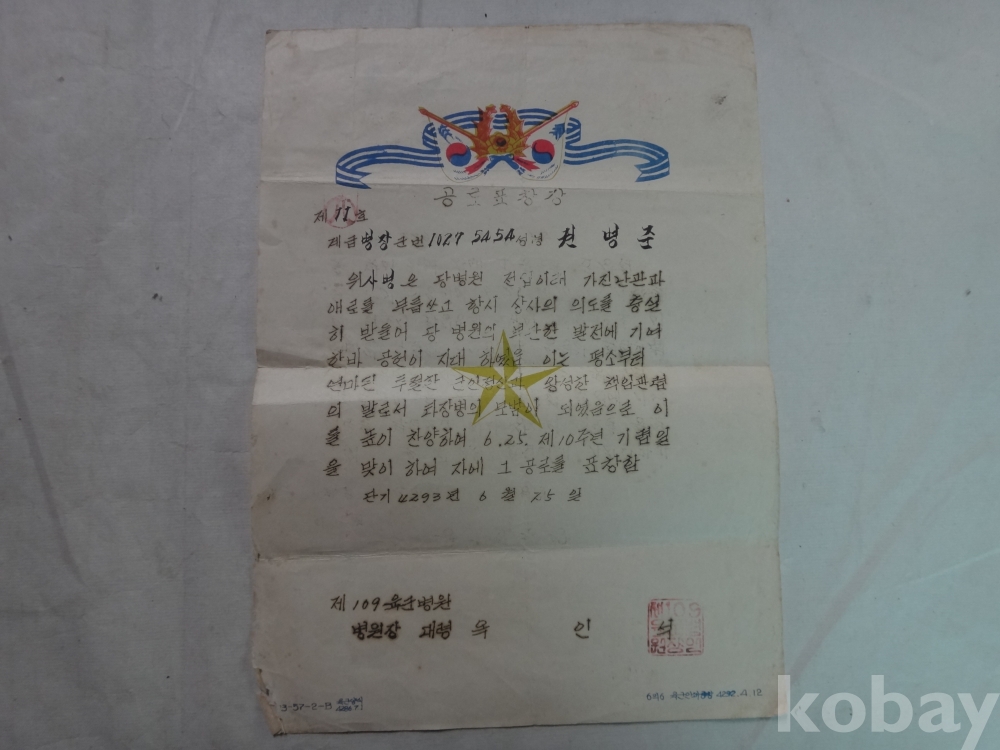 공로표창장
제 11 호
계급 병장 군번 1027 5454 성명 권 병 준
위 사병은 당병원 전입이래 가진난관과
애로를 무릅쓰고 항시 상사의 의도를 충실
히 받들어 당 병원의 부단한 발전에 기여
한바 공헌이 지대 하였음 이는 평소부터
연마된 투철한 군인정신과 왕성한 책임관념
의 발로서 타장병의 모범이 되었음으로 이
를 높이 찬양하여 6.25. 제10주년 기념일
을 맞이 하여 자에 그 공로를 표창함
단기 4293년 6월 25일
제 109 육군병원
병원장 대령 옥 인 석
3-57-2-13
4292.4.12
kobay